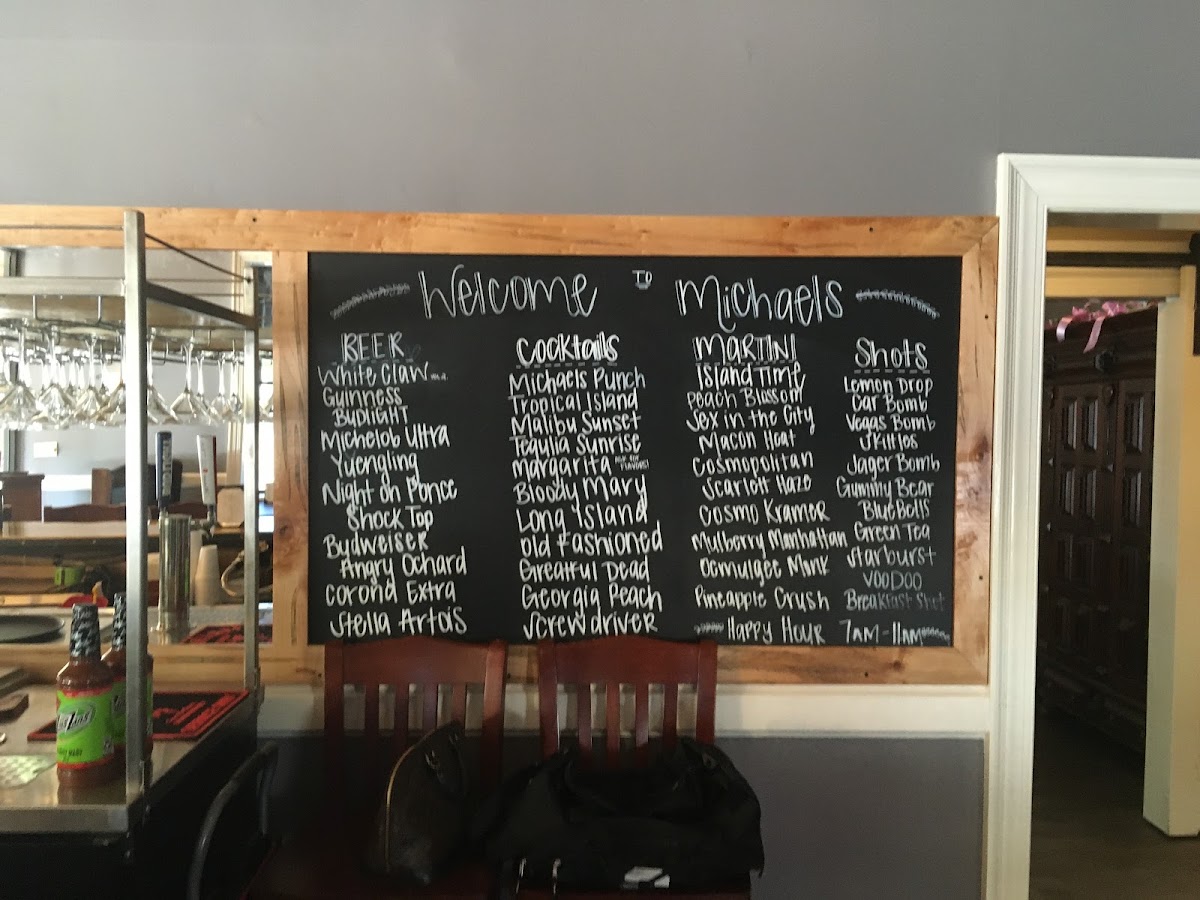 Welcome TO Michaels
BEER
White Claw
Guinness
BUDLIGHT
Michelob Ultra
Yuengling
Night on Ponce
Shock Top
Budweiser
Angry Ochard
Corona Extra
Stella Artois
Cocktails
Michaels Punch
Tropical Island
Malibu Sunset
Tequlia Sunrise
Margarita ASK FOR FLAVORS!
Bloody Mary
Long Island
Old Fashioned
Greatful Dead
Georgia Peach
Screwdriver
MARTINI
Island Time
Peach Blossom
Sex in the City
Macon Heat
Cosmopolitan
Scarlett Haze
Cosmo Kramer
Mulberry Manhattan
Ocmulgee Monk
Pineapple Crush
Shots
Lemon Drop
Car Bomb
Vegas Bomb
Skittles
Jager Bomb
Gummy Bear
BlueBells
Green Tea
Starburst
VOODOO
Breakfast Shot
Happy Hour 7AM-11AM